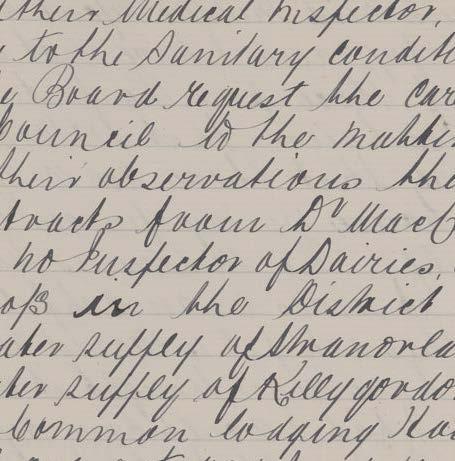 their Medical Inspector,
to the Sanitary condit
Board request the car
Council to the matte
their observations the
tracts from Dr MacC
no Inspector of Dairies,
ops in the District
ater supply of Stranorla
ter supply of Killygordo
Common lodging Hou